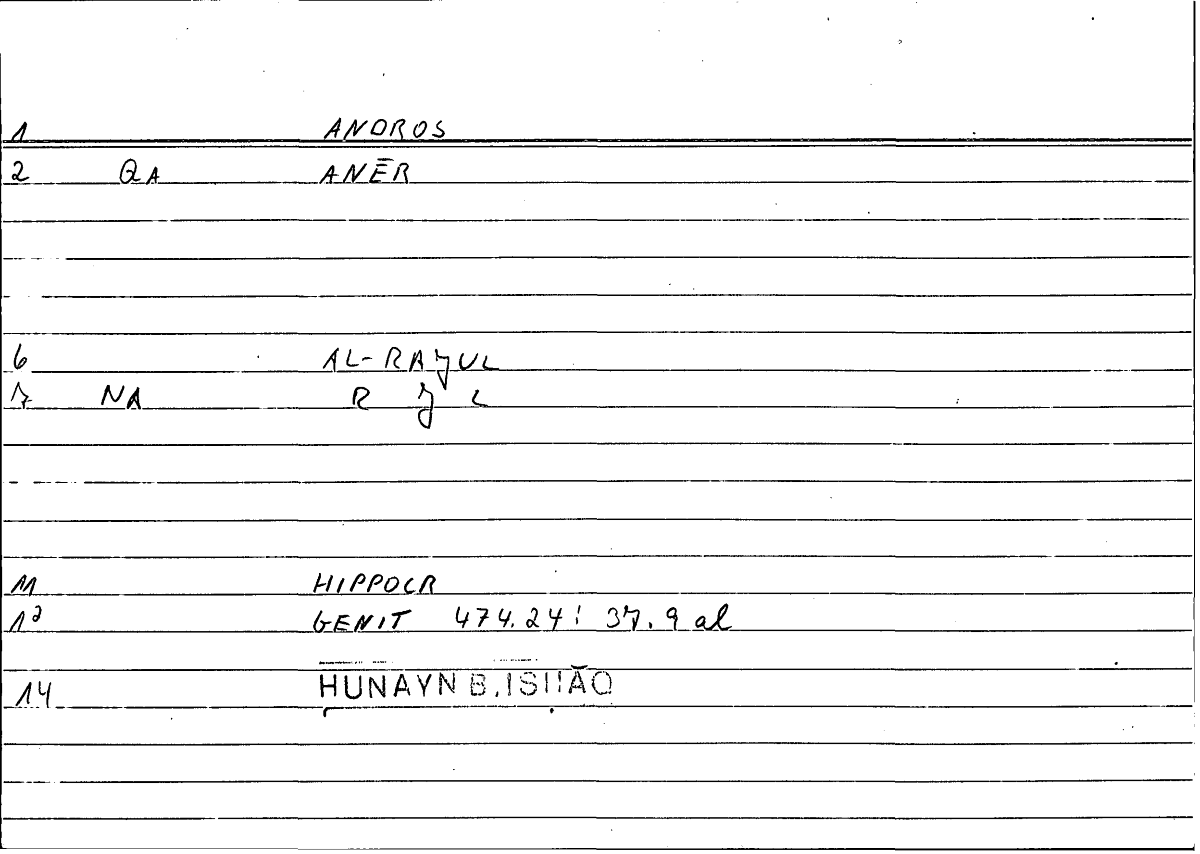 1 ANDROS
2 QA ANĒR
6 AL-RAJUL
7 NA R J L
11 HIPPOCR
12 GENIT 474.24: 37.9 al
14 HUNAYN B. ISḤĀQ